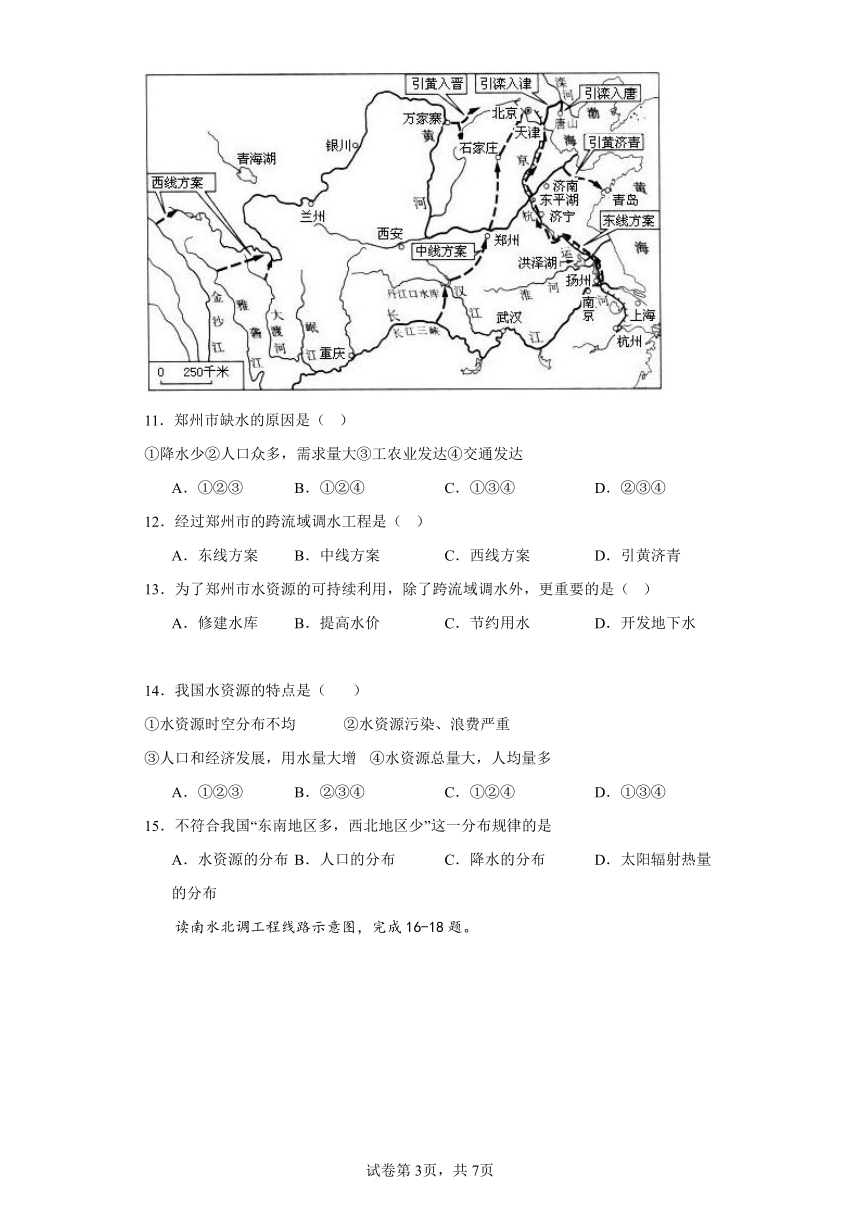 引黄入晋
引滦入津
滦河
引滦入唐
渤海
万家寨
北京
天津
唐山
黄河
银川
石家庄
引黄济青
青海湖
京杭运河
西线方案
济南
青岛
黄海
东平湖
兰州
济宁
东线方案
西安
中线方案
郑州
洪泽湖
扬州
丹江口水库
汉江
淮河
南京
金沙江
雅砻江
大渡河
岷江
长江
武汉
上海
长江三峡
重庆
杭州
0 250千米
11．郑州市缺水的原因是（ ）
①降水少②人口众多，需求量大③工农业发达④交通发达
A．①②③ B．①②④ C．①③④ D．②③④
12．经过郑州市的跨流域调水工程是（ ）
A．东线方案 B．中线方案 C．西线方案 D．引黄济青
13．为了郑州市水资源的可持续利用，除了跨流域调水外，更重要的是（ ）
A．修建水库 B．提高水价 C．节约用水 D．开发地下水
14．我国水资源的特点是（ ）
①水资源时空分布不均 ②水资源污染、浪费严重
③人口和经济发展，用水量大增 ④水资源总量大，人均量多
A．①②③ B．②③④ C．①②④ D．①③④
15．不符合我国“东南地区多，西北地区少”这一分布规律的是
A．水资源的分布 B．人口的分布 C．降水的分布 D．太阳辐射热量
的分布
读南水北调工程线路示意图，完成16-18题。
试卷第3页，共7页